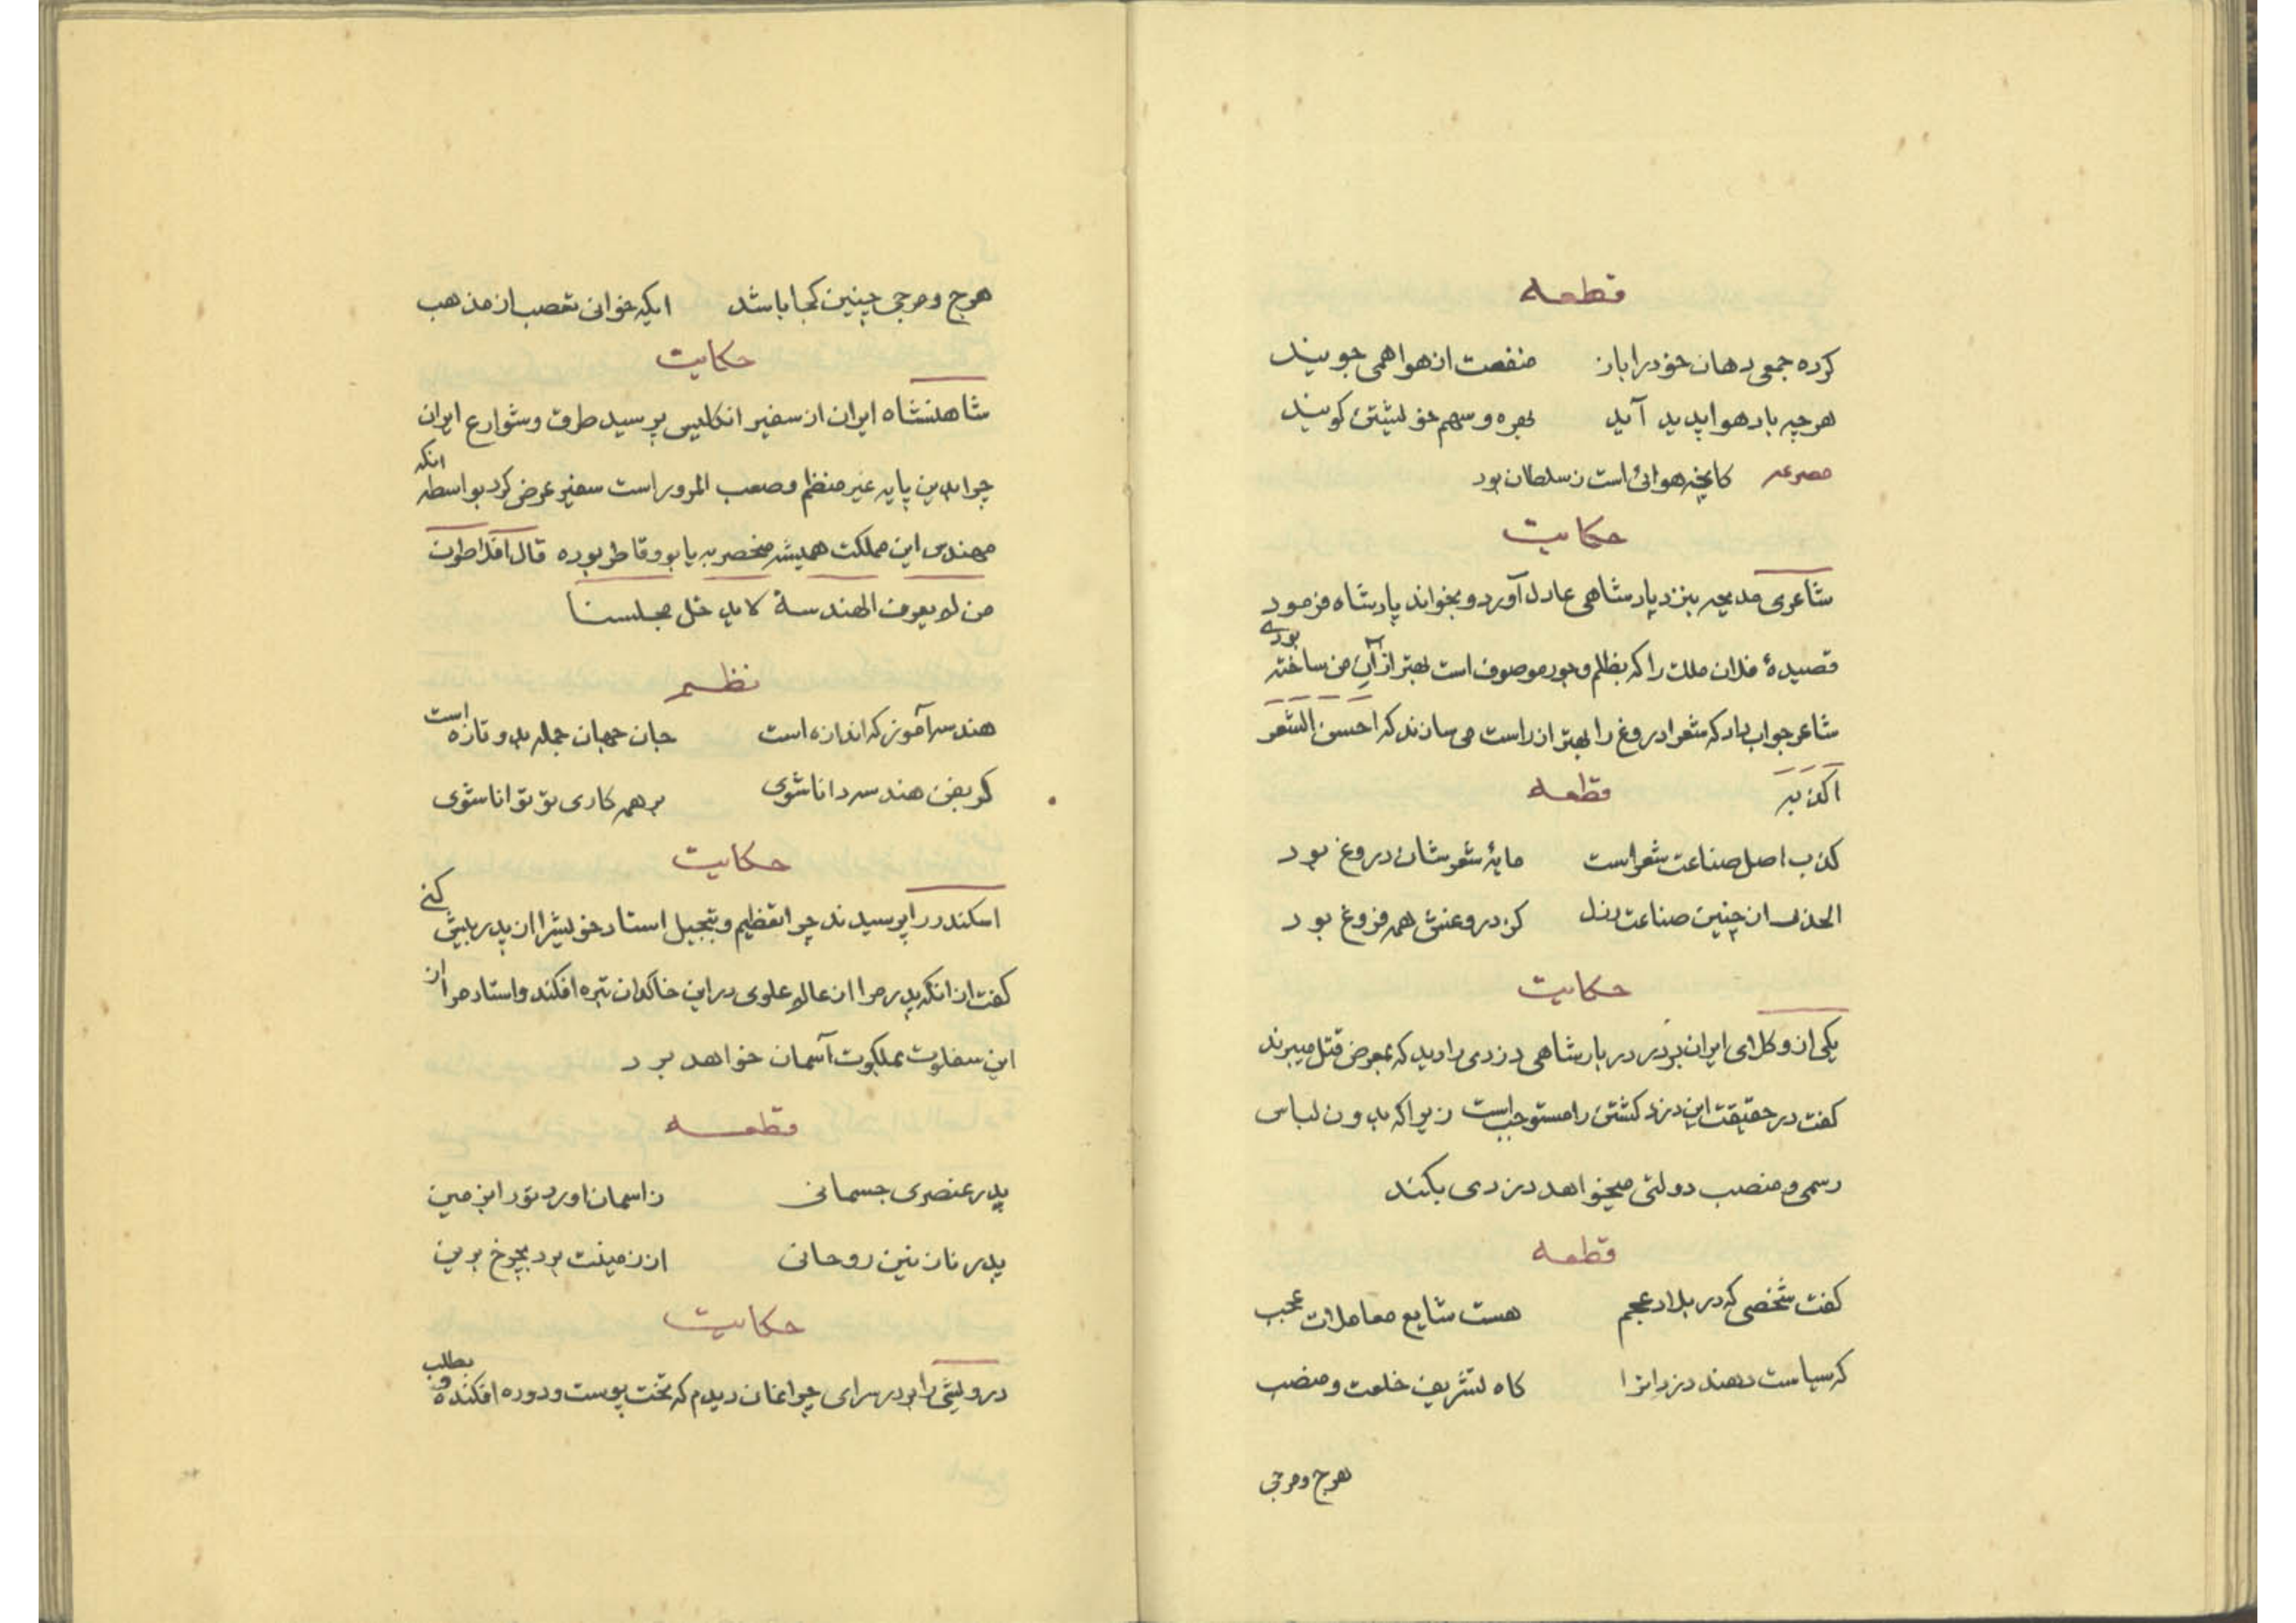 قطعه
کرده جمعی دهان خود را باز منفعت از هوا همی جویند
هرچه باد هوا پدید آید بهره و سهم خویشتن گویند
مصرعه کانچه هوائی است ز سلطان بود
حکایت
شاعری مدیحه بنزد پادشاهی عادل آورد و بخواند پادشاه فرمود
قصیدهٔ فلان ملک را که بظلم و جور موصوف است بهتر از آن من ساخته بودی
شاعر جواب داد که شعرا دروغ را بهتر از راست می سازند که احسن الشعر
اکذبه قطعه
کذب اصل صناعت شعراست مایهٔ شعرشان دروغ بود
الحذر از چنین صناعت رذل کز دروغش همه فروغ بود
حکایت
یکی از وکلای ایران بر در دربار شاهی دزدی را دید که بمعرض قتل میبرند
گفت در حقیقت این دزد کشتن را مستوجب است زیرا که بدون لباس
رسمی و منصب دولتی میخواهد دزدی بکند
قطعه
گفت شخصی که در بلاد عجم هست شایع معاملات عجب
که سیاست دهند دزدانرا گاه تشریف خلعت و منصب
هرج و مرجی
هرج و مرجی چنین کجا باشد ایکه خوانی تعصب از مذهب
حکایت
شاهنشاه ایران از سفیر انگلیس پرسید طرق و شوارع ایران
چرا بدین پایه غیر منظم و صعب المرور است سفیر عرض کرد بواسطه انکه
مهندس این مملکت همیشه منحصر به یابو و قاطر بوده قال افلاطون
من لا یعرف الهندسة لا یدخل مجلسنا
نظم
هندسه آموز که اندازه است جان جهان جمله بدو تازه است
گر بفن هندسه دانا شوی بر همه کاری تو توانا شوی
حکایت
اسکندر را پرسیدند چرا تعظیم و تبجیل استاد خویشرا از پدر بیش کنی
گفت از انکه پدر مرا از عالم علوی در این خاکدان تیره افکند و استاد مرا از
این سفلی بملکوت آسمان خواهد برد
قطعه
پدر عنصری جسمانی ز اسمان اورد تو را بزمین
پدر نازنین روحانی از زمینت برد بچرخ برین
حکایت
درویشی را بر در سرای چراغان دیدم که تخت پوست و دوره افکنده و بطلب